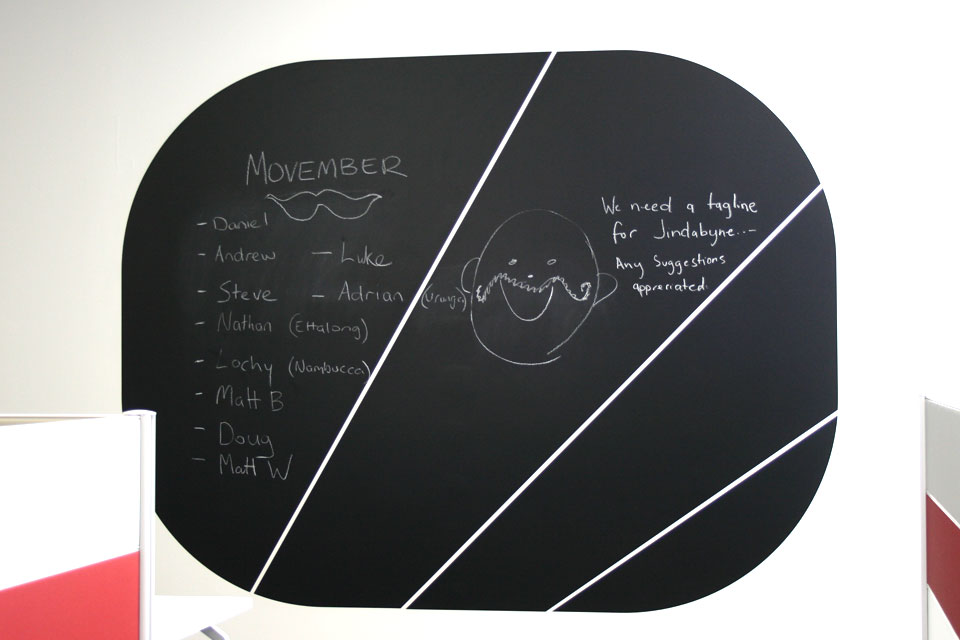 MOVEMBER
- Daniel
- Andrew - Luke
- Steve - Adrian (Urunga)
- Nathan (Ettalong)
- Lochy (Nambucca)
- Matt B
- Doug
- Matt W
We need a tagline
for Jindabyne...-
Any Suggestions
appreciated.